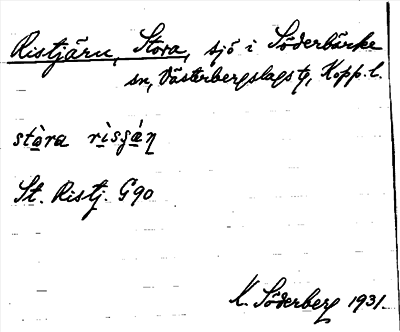 Ristjärn, Stora, sjö i Söderbärke
sn, Västerbergslags tg, Kopp. l.
stòra rìsʂán
St. Ristj. G90
K. Söderberg 1931.